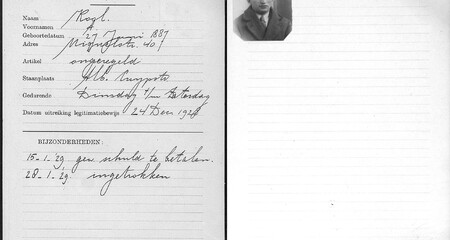 Naam Kogl.
Voornamen
Geboortedatum 27 Juni 1887
Adres 40
Artikel ongeregeld
Staanplaats Alb. Cuypstr
Gedurende Dinsdag t/m Zaterdag
Datum uitreiking legitimatiebewijs 24 Dec 1928
BIJZONDERHEDEN:
15-1-29. geen schuld te betalen.
28-1-29. ingetrokken